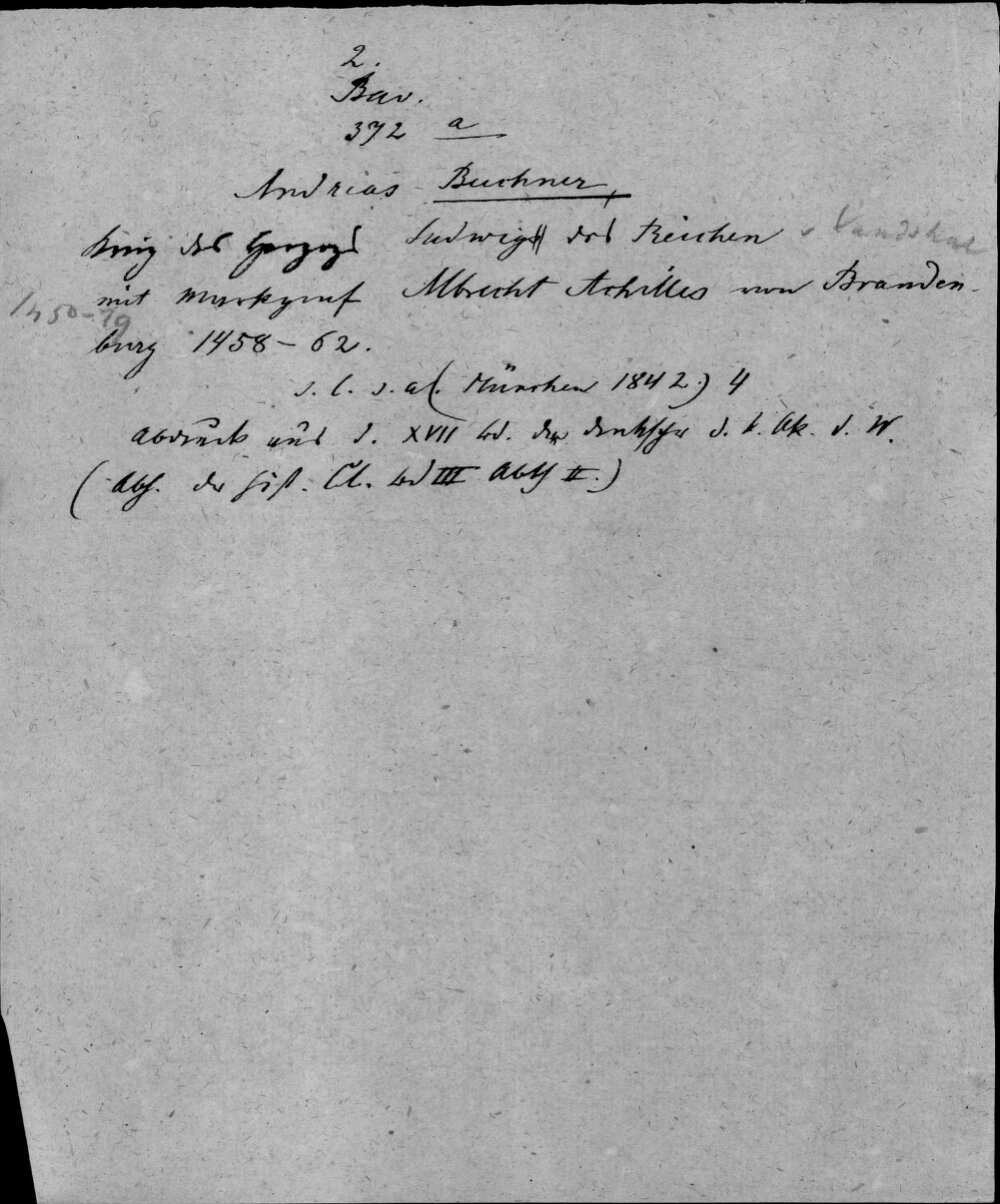 2.
Bav.
372 a
Andreas Buchner,
Krieg des Herzogs Ludwigs des Reichen v Landshut
mit Markgraf Albrecht Achilles von Branden-
1450-79
burg 1458-62.
s. l. s. a (. München 1842.) 4
Abdruck aus d. XVII Bd. der Denkschr d. k. Ak. d. W.
(Abh. der hist. Cl. Bd III Abth II.)